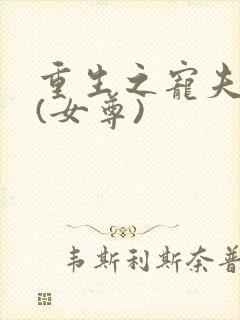 重生之寵夫
(女尊)
韦斯利斯奈普